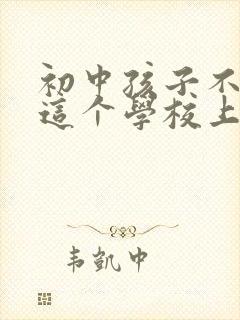 初中孩子不
這个學校上
韦凱中